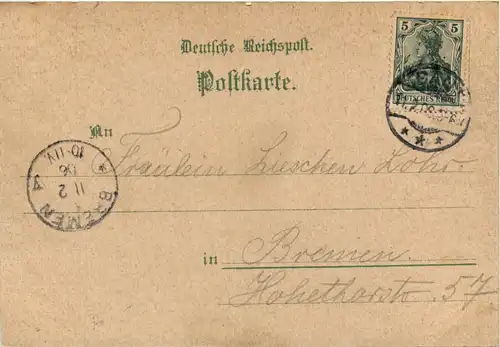 Deutsche Reichspost.
Postkarte.
5 5
DEUTSCHES REICH
An
Fräulein Lieschen Lohr.
BREMEN
11 2
06
10-11V.
in Bremen
Hohethorstr. 57